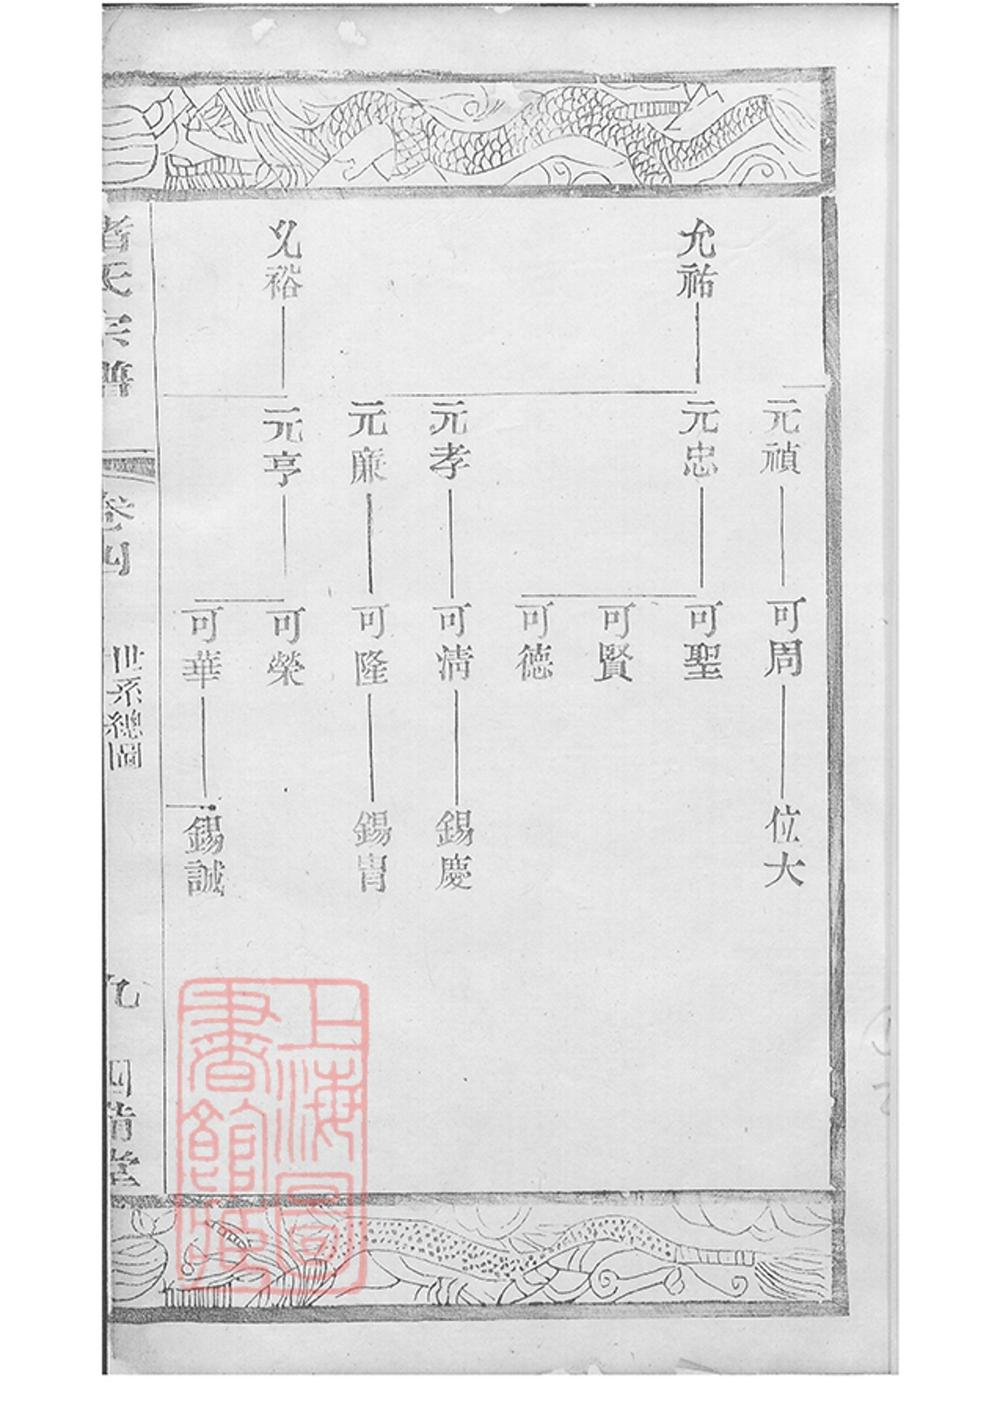 允祐
允裕
元禎
元忠
元孝
元廉
元亨
可周
可聖
可賢
可德
可清
可隆
可榮
可華
位大
錫慶
錫胄
錫誠
宗譜
卷四
世系總圖
九
堂
上海圖
書館藏